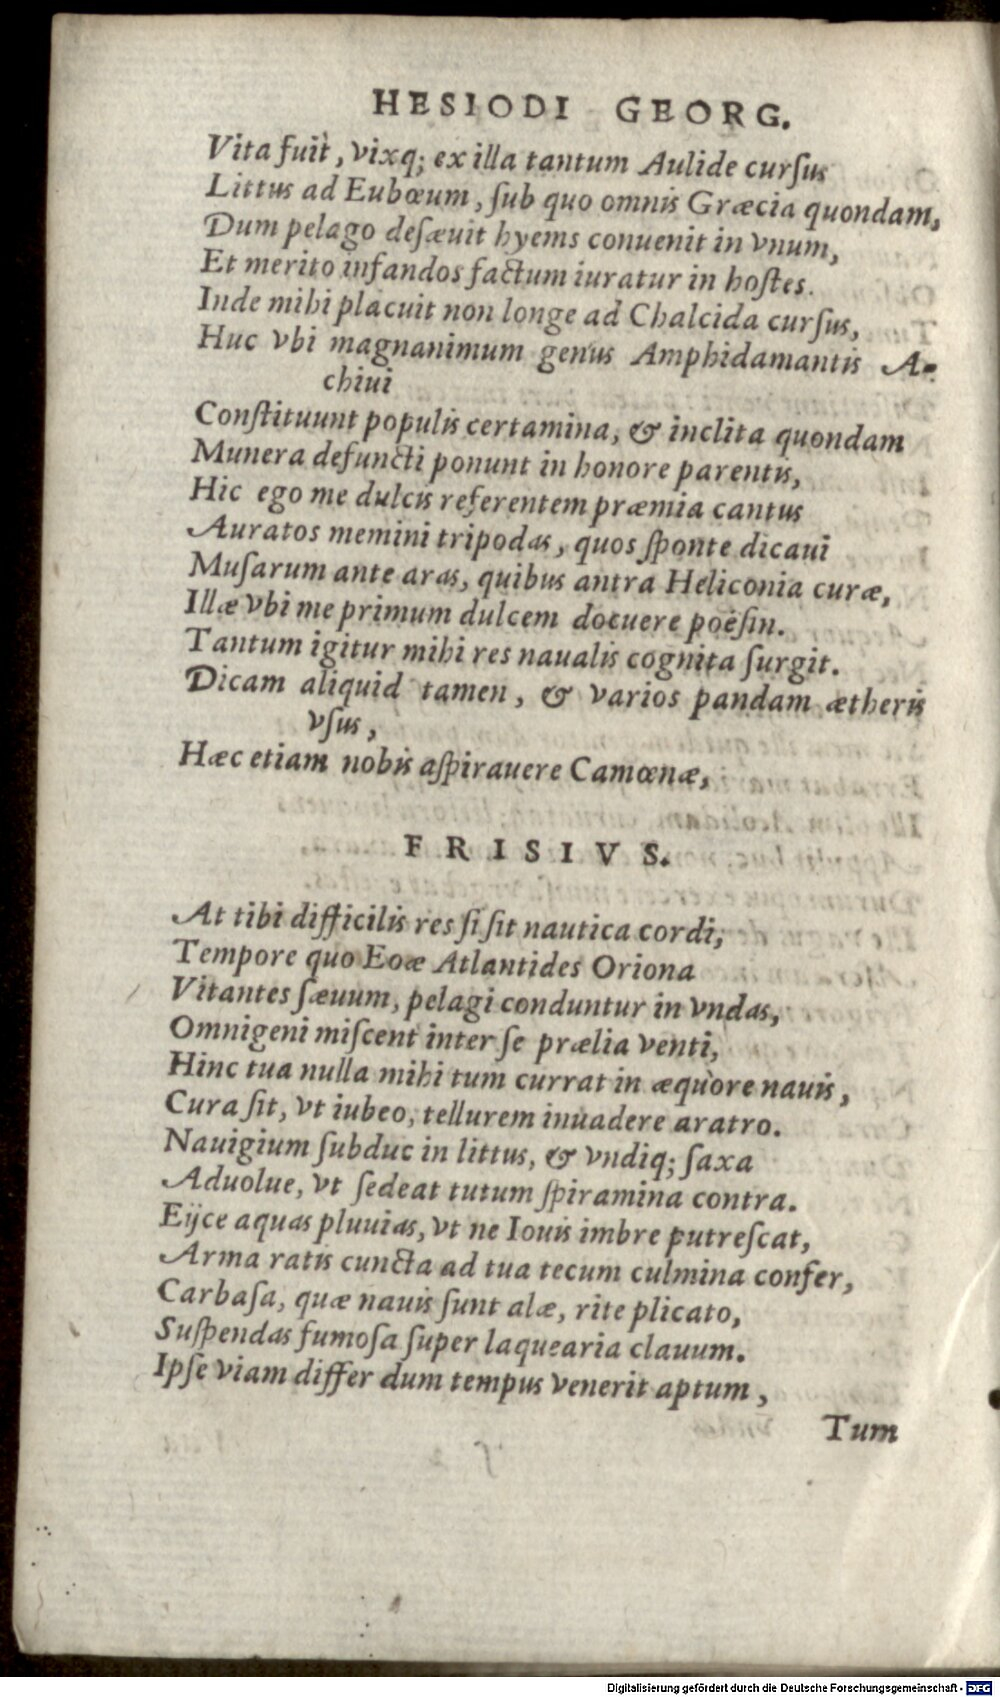 HESIODI GEORG.
Vita fuit, vixq; ex illa tantum Aulide curſus
Littus ad Eubœum, ſub quo omnis Græcia quondam,
Dum pelago deſæuit hyems conuenit in vnum,
Et merito infandos factum iuratur in hoſtes.
Inde mihi placuit non longe ad Chalcida curſus,
Huc vbi magnanimum genus Amphidamantis A-
chiui
Conſtituunt populis certamina, & inclita quondam
Munera defuncti ponunt in honore parentis,
Hic ego me dulcis referentem præmia cantus
Auratos memini tripodas, quos ſponte dicaui
Muſarum ante aras, quibus antra Heliconia curæ,
Illæ vbi me primum dulcem docuere poëſin.
Tantum igitur mihi res naualis cognita ſurgit.
Dicam aliquid tamen, & varios pandam ætheris
vſus,
Hæc etiam nobis aſpirauere Camœnæ,
FRISIVS.
At tibi difficilis res ſi ſit nautica cordi,
Tempore quo Eoæ Atlantides Oriona
Vitantes ſæuum, pelagi conduntur in vndas,
Omnigeni miſcent inter ſe prælia venti,
Hinc tua nulla mihi tum currat in æquore nauis,
Cura ſit, vt iubeo, tellurem inuadere aratro.
Nauigium ſubduc in littus, & vndiq; ſaxa
Aduolue, vt ſedeat tutum ſpiramina contra.
Eijce aquas pluuias, vt ne Iouis imbre putreſcat,
Arma ratis cuncta ad tua tecum culmina confer,
Carbaſa, quæ nauis ſunt alæ, rite plicato,
Suſpendas fumoſa ſuper laquearia clauum.
Ipſe viam differ dum tempus venerit aptum,
Tum
Digitalisierung gefördert durch die Deutsche Forschungsgemeinschaft - DFG